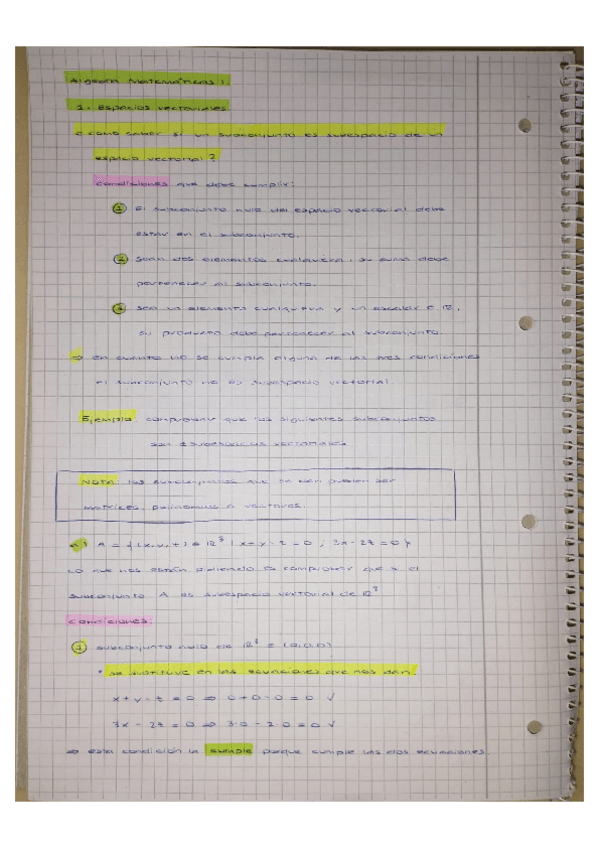 Algebra Matemáticas I
1. Espacios vectoriales
¿Cómo saber si un subconjunto es subespacio de un
espacio vectorial?
Condiciones que debe cumplir:
1 El subconjunto nulo del espacio vectorial debe
estar en el subconjunto.
2 Sean dos elementos cualquiera, su suma debe
pertenecer al subconjunto.
3 Sea un elemento cualquiera y un escalar ∈ ℝ,
su producto debe pertenecer al subconjunto.
⇒ En cuanto NO se cumpla alguna de las tres condiciones
el subconjunto no es subespacio vectorial.
Ejemplo: comprobar que los siguientes subconjuntos
son subespacios vectoriales
NOTA: los subconjuntos que te dan pueden ser
matrices, polinomios o vectores.
a) A = {(x,y,z) ∈ ℝ³ | x+y-z=0 ; 3x-2z=0}
Lo que nos están pidiendo es comprobar que el
subconjunto A es subespacio vectorial de ℝ³
Condiciones:
1 subconjunto nulo de ℝ³ = (0,0,0)
• se sustituye en las ecuaciones que nos dan:
x+y-z=0 ⇒ 0+0-0=0 ✓
3x-2z=0 ⇒ 3·0-2·0=0 ✓
⇒ esta condición la cumple porque cumple las dos ecuaciones.